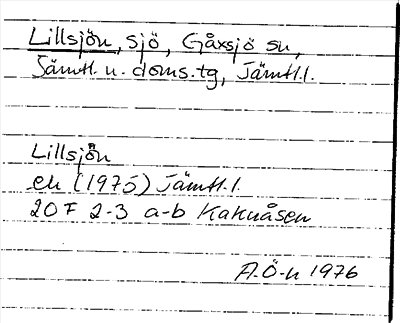 Lillsjön, sjö, Gåxsjö sn,
Jämtl. n. doms.tg, Jämtl.l.
Lillsjön
ek (1975) Jämtl.l.
20 F 2-3 a-b Kaknåsen
A.Ö-n 1976